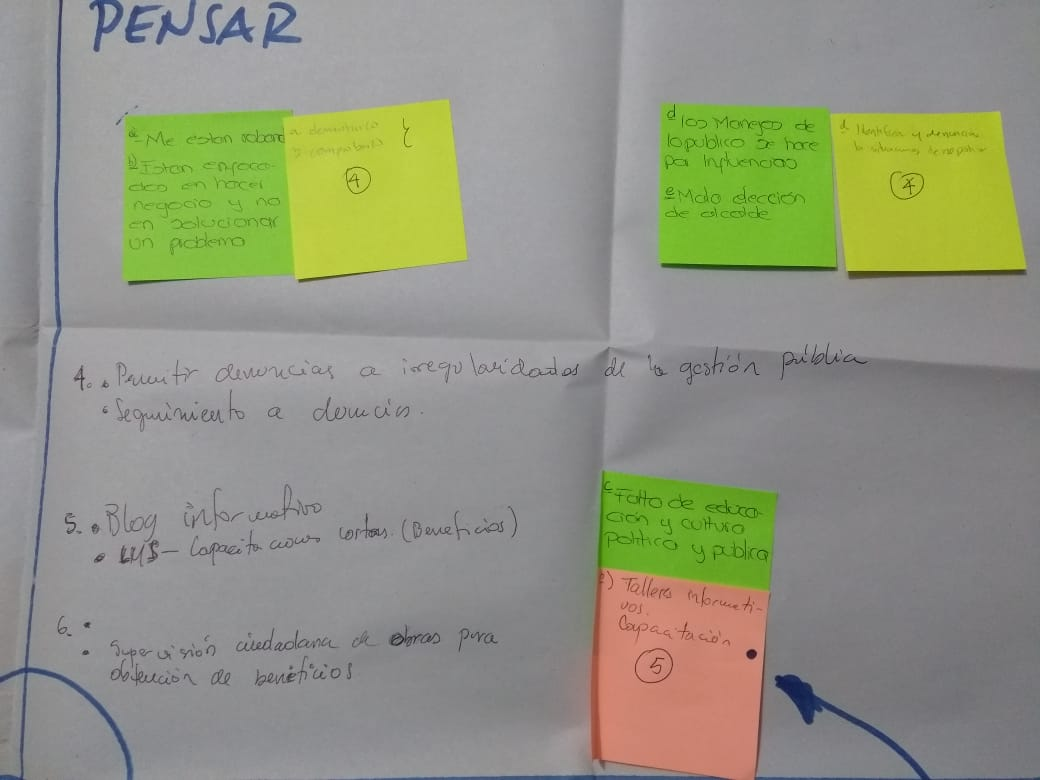 PENSAR
a- Me estan roband
b) Estan enfoca-
dos en hacer
negocio y no
en solucionar
un problema
a.
4
d los Manejos de
lo publico se hace
por influencias
e Mala elección
de alcalde
d. Identificar y denunciar
4
4. • Permitir denuncias a irregularidades de la gestión pública
• Seguimiento a
5. • Blog informativo
• LMS - Capacitaciones cortas. (Beneficios)
6. •
• Supervisión ciudadana de obras para
obtención de beneficios
c- Falta de educa-
ción y cultura
politica y publica
) Tallers informati-
vos.
Capacitación
5